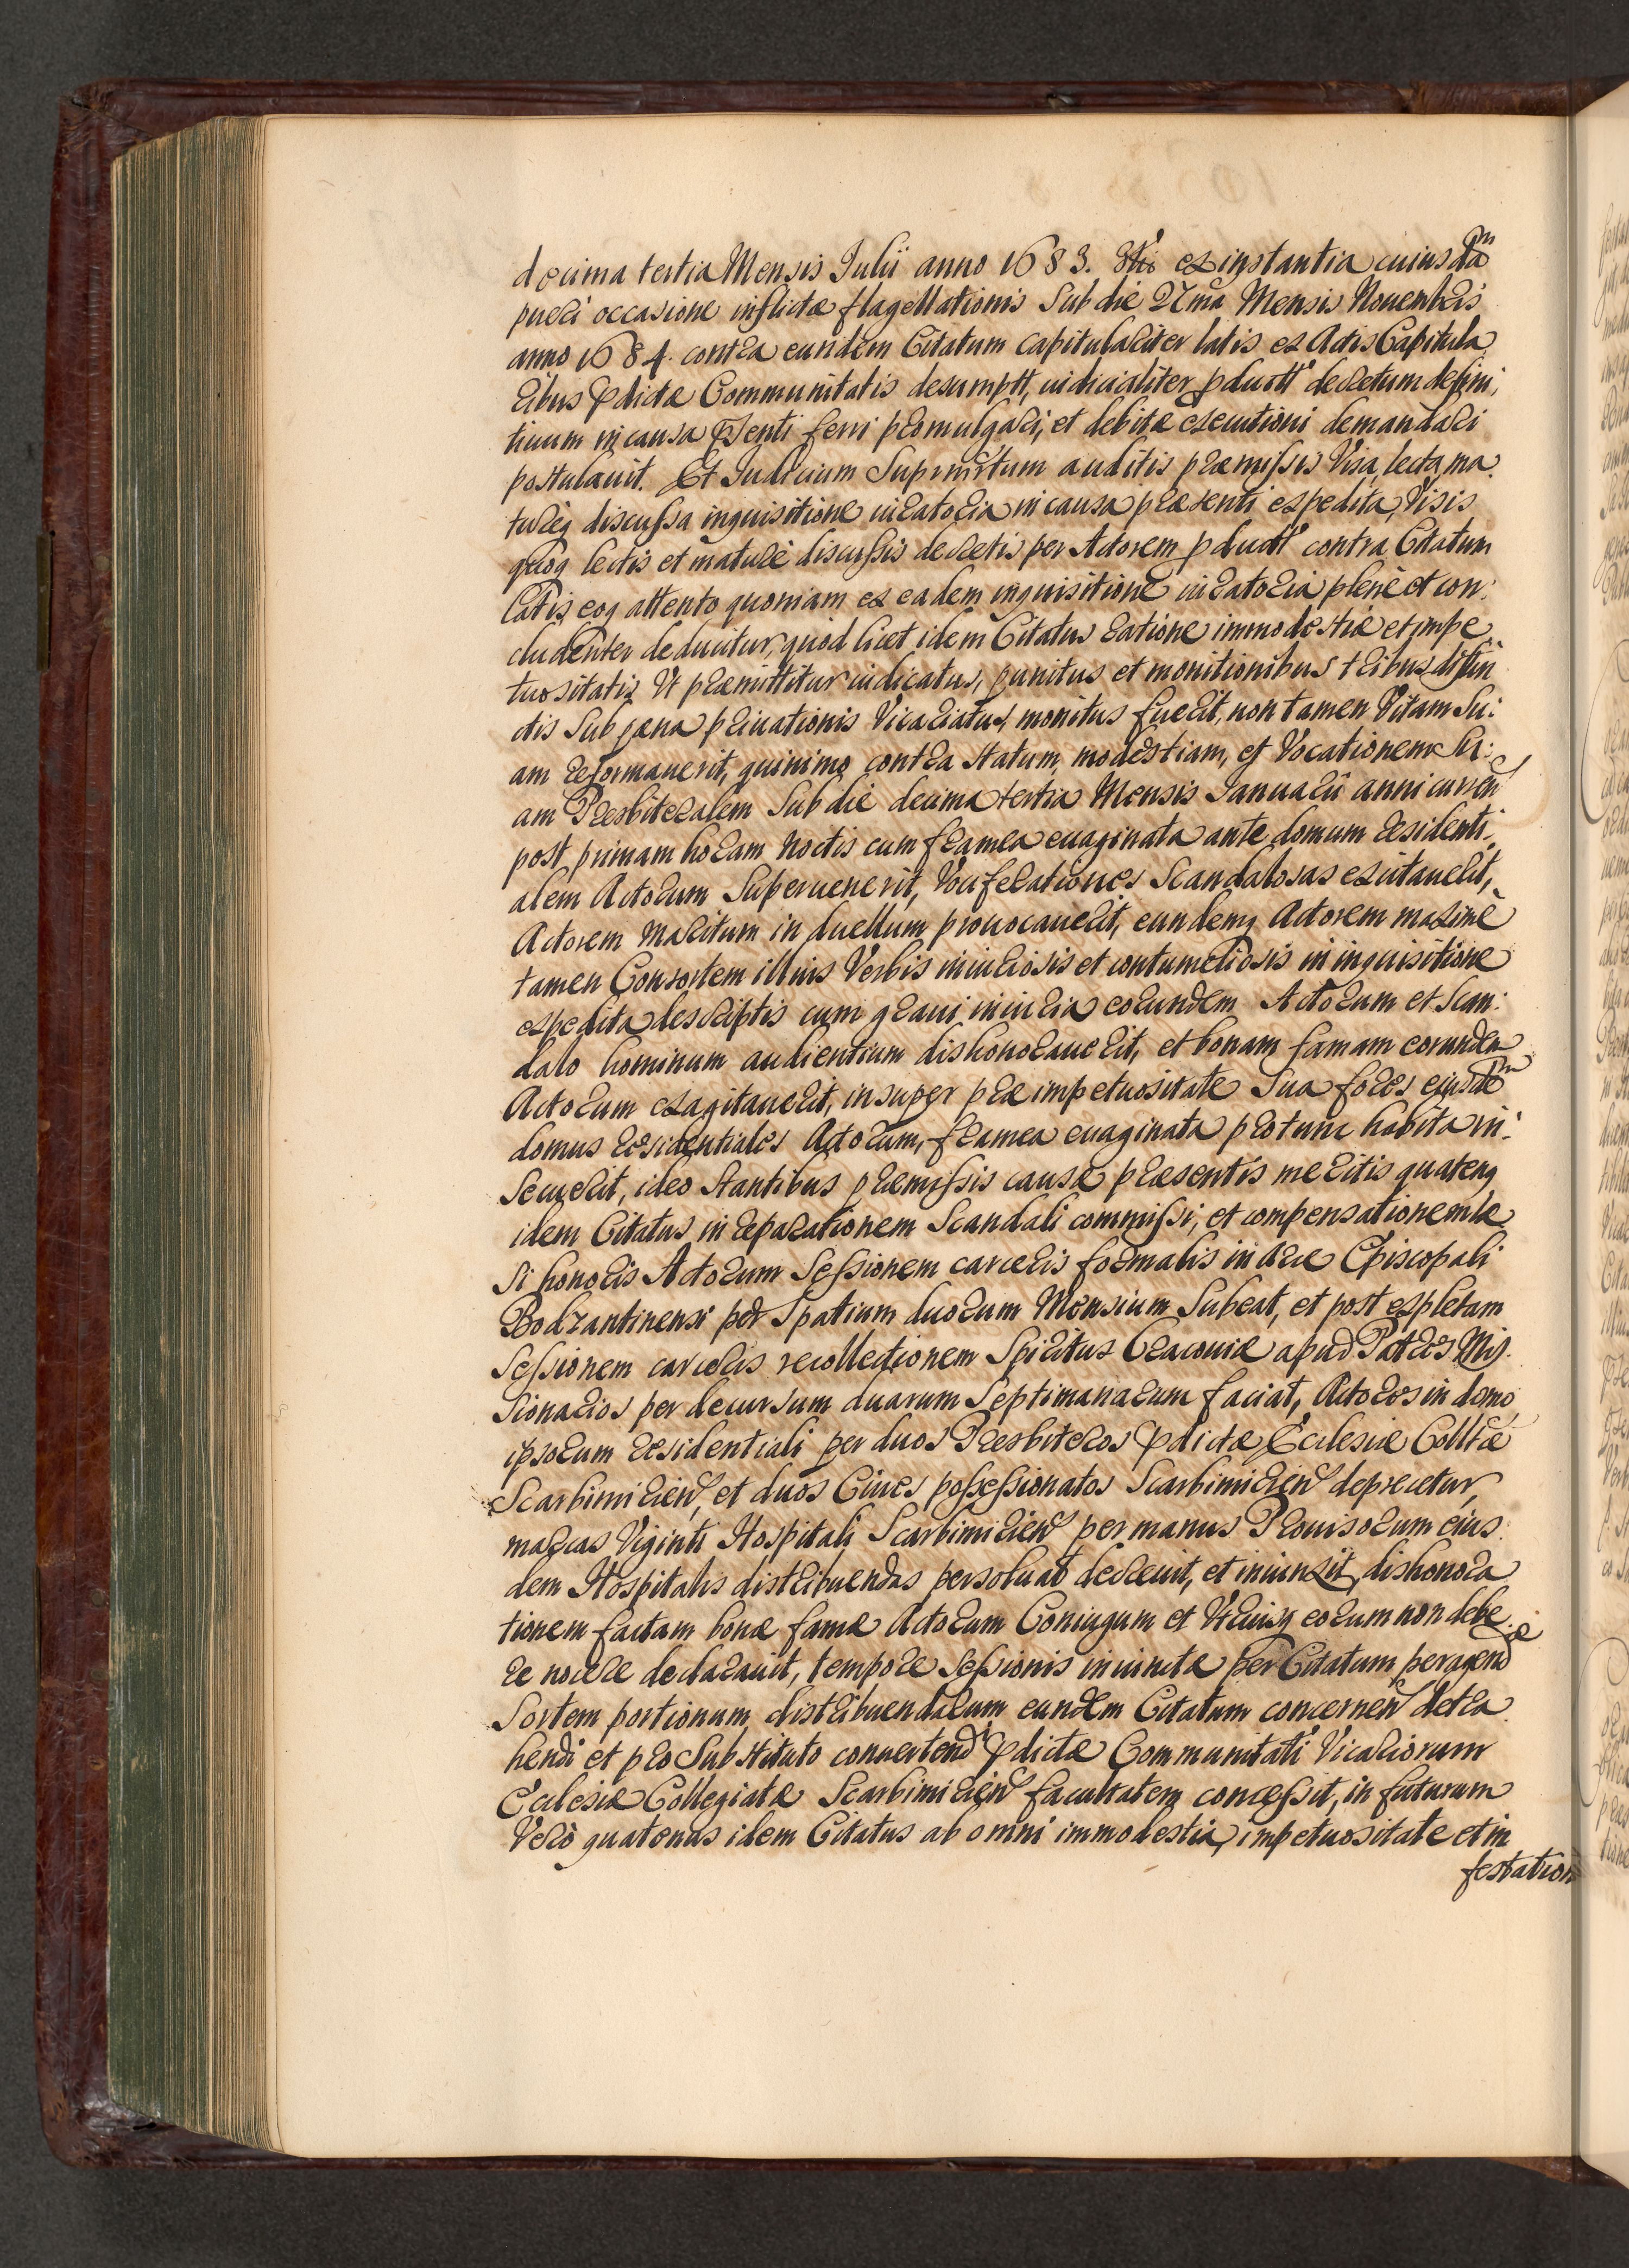 decima tertia Mensis Julii anno 1683. ex instantia cuiusdam
pueri occasione inflictæ flagellationis Sub die Mensis Nouembris
anno 1684. contra eundem Citatum capitulariter latis ex Actis Capitula
ribus pdictæ Communitatis desumptt, iudicialiter pductt decretum defini:
tiuum in causa psenti ferri promulgari, et debitæ executioni demandari
postulauit. Et Judicium Suprascriptum auditis præmissis Visa, lecta, ma
tureq discussa inquisitione iuratoria in causa præsenti expedita, Visis
quoq lectis et maturè discussis decretis per Actorem pductt contra Citatum
latis, eoq attento quoniam ex eadem inquisitione iuratoria plenè et con:
cludenter deducitur, quod licet idem Citatus ratione immodestiæ et impe
tuositatis Vt præmittitur iudicatus, punitus et monitionibus tribus distin
ctis Sub pæna priuationis Vicariatus, monitus fuerit, non tamen Vitam Su:
am reformauerit, quinimo contra statum, modestiam, et Vocationem Su:
am Presbiteralem Sub die decima tertia Mensis Januarii anni curren
post primam horam noctis cum framea euaginata ante domum residenti:
alem Actorum Superuenerit, Vociferationes Scandalosas excitauerit,
Actorem Maritum in duellum prouocauerit, eundemq Actorem maximè
tamen Consortem illius Verbis iniuriosis et contumeliosis in inquisitione
expedita descriptis cum graui iniuria eorundem Actorum et Scan:
dalo hominum audientium dishonorauerit, et bonam famam eorundem
Actorum exagitauerit, insuper præ impetuositate Sua fores eiusdem
domus residentiales Actorum, framea euaginata protunc habita in:
Secuerit, ideo stantibus præmissis causæ præsentis meritis quatenq
idem Citatus in reparationem Scandali commissi, et compensationem læ
Si honoris Actorum Sessionem carceris formalis in arce Episcopali
Bodzantinensi per Spatium duorum Mensium Subeat, et post expletam
Sessionem carceris recollectionem Spiritus Cracouiæ apud Patres Mis
Sionarios per decursum duarum Septimanarum faciat, Actores in domo
ipsorum residentiali per duos Presbiteros pdictæ Ecclesiæ Colltæ
Scarbimirien, et duos Ciues possessionatos Scarbimirien deprecetur,
marcas Viginti Hospitali Scarbimirien per manus Prouisorum eius:
dem Hospitalis distribuendas persoluat decreuit, et iniunxit, dishonora
tionem factam bonæ famæ Actorum Coniugum et Vtriusq eorum non debe
re nocere declarauit, tempore Sessionis iniunctæ per Citatum peragendæ
Sortem portionum distribuendarum eundem Citatum concernen detra
hendi et pro Substituto conuertendi pdictæ Communitati Vicariorum
Ecclesiæ Collegiatæ Scarbimirien facultatem concessit, in futurum
Verò quatenus idem Citatus ab omni immodestia, impetuositate et in
festation